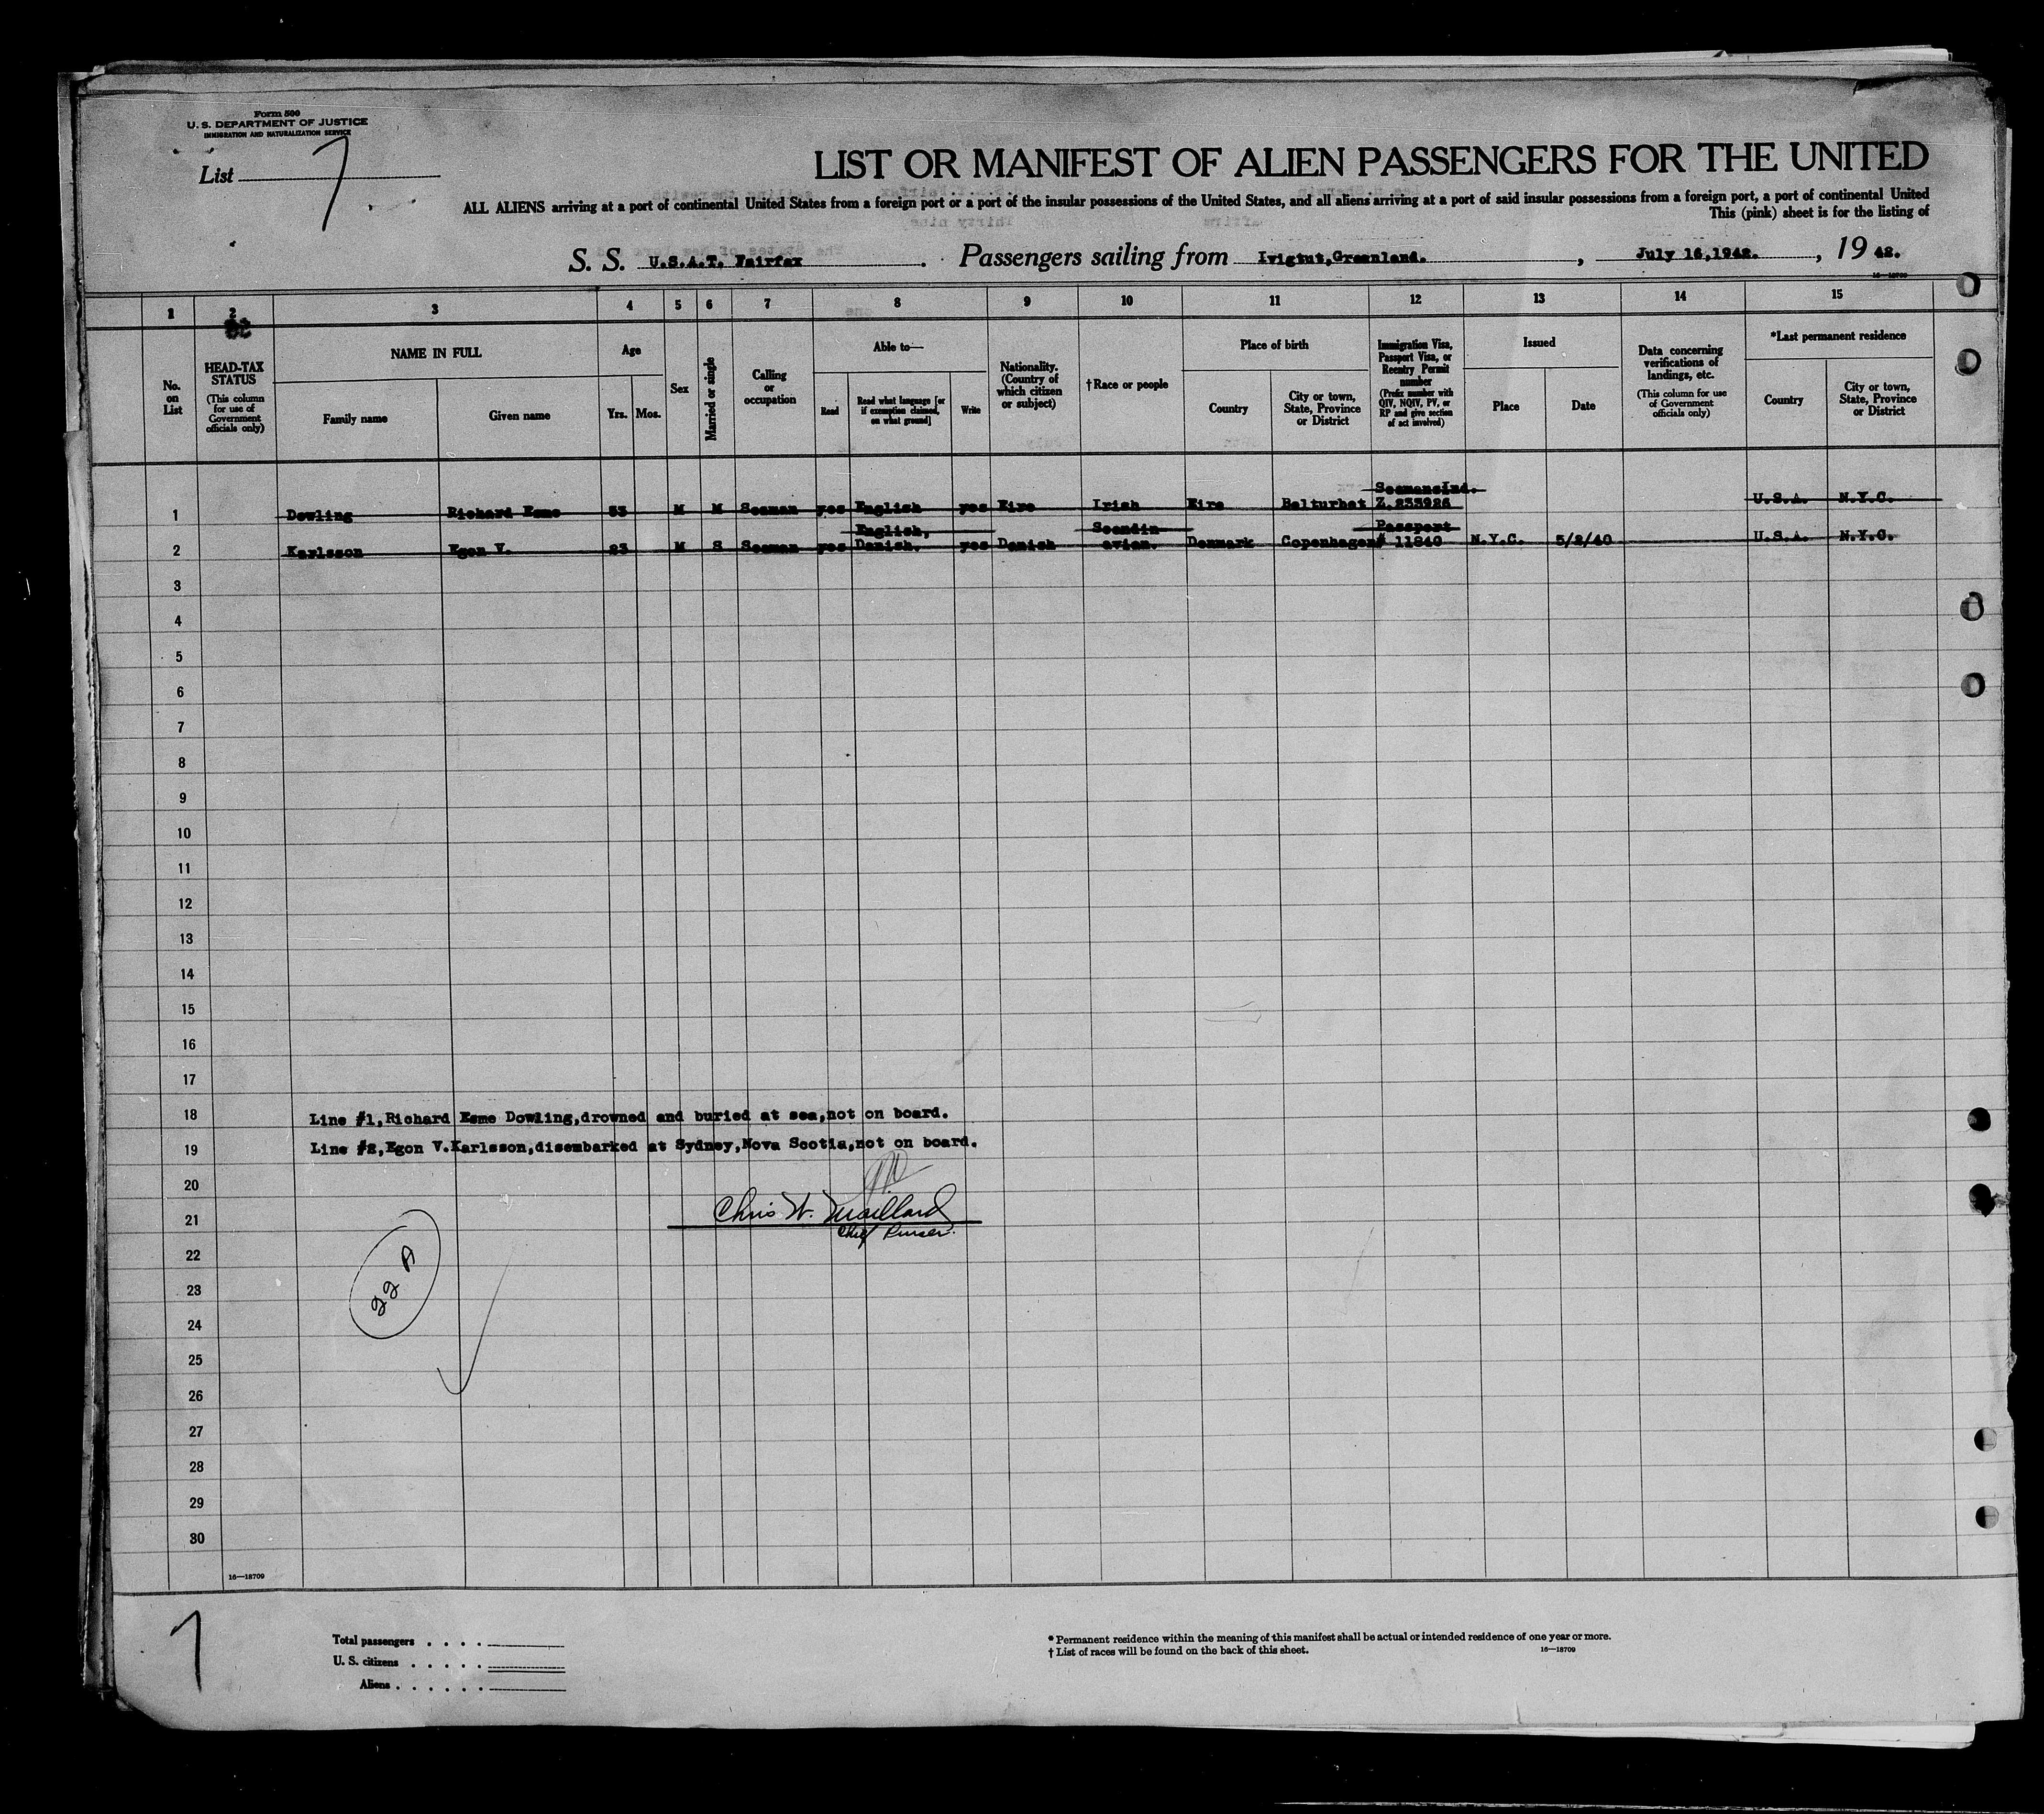 Form 500
U. S. DEPARTMENT OF JUSTICE
IMMIGRATION AND NATURALIZATION SERVICE
List 7
LIST OR MANIFEST OF ALIEN PASSENGERS FOR THE UNITED
ALL ALIENS arriving at a port of continental United States from a foreign port or a port of the insular possessions of the United States, and all aliens arriving at a port of said insular possessions from a foreign port, a port of continental United
This (pink) sheet is for the listing of
S. S. U.S.A.T. Fairfax. Passengers sailing from Ivigtut,Greenland. , July 16,1942. , 19 42.
16—18709
1 2 3 4 5 6 7 8 9 10 11 12 13 14 15
No. on List
HEAD-TAX STATUS (This column for use of Government officials only)
NAME IN FULL
Family name Given name
Age
Yrs. Mos.
Sex
Married or single
Calling or occupation
Able to—
Read Read what language [or if exemption claimed, on what ground] Write
Nationality. (Country of which citizen or subject)
† Race or people
Place of birth
Country City or town, State, Province or District
Immigration Visa, Passport Visa, or Reentry Permit number (Prefix number with QIV, NQIV, PV, or RP and give section of act involved)
Issued
Place Date
Data concerning verifications of landings, etc. (This column for use of Government officials only)
*Last permanent residence
Country City or town, State, Province or District
SeamansInd.
1 Dowling Richard Esme 53 M M Seaman yes English yes Eire Irish Eire Balturbet Z.233926 U.S.A. N.Y.C.
English, Scandin- Passport
2 Karlsson Egon V. 23 M S Seaman yes Danish. yes Danish avian. Denmark Copenhagen # 11840 N.Y.C. 5/2/40 U.S.A. N.Y.C.
3
4
5
6
7
8
9
10
11
12
13
14
15
16
17
18 Line #1,Richard Esme Dowling,drowned and buried at sea,not on board.
19 Line #2,Egon V.Karlsson,disembarked at Sydney,Nova Scotia,not on board.
20
21 Chris W. Maillard
Chief Purser.
22
22 A
23
24
25
26
27
28
29
30
16—18709
7
Total passengers . . . .
U. S. citizens . . . . .
Aliens . . . . . .
* Permanent residence within the meaning of this manifest shall be actual or intended residence of one year or more.
† List of races will be found on the back of this sheet. 16—18709